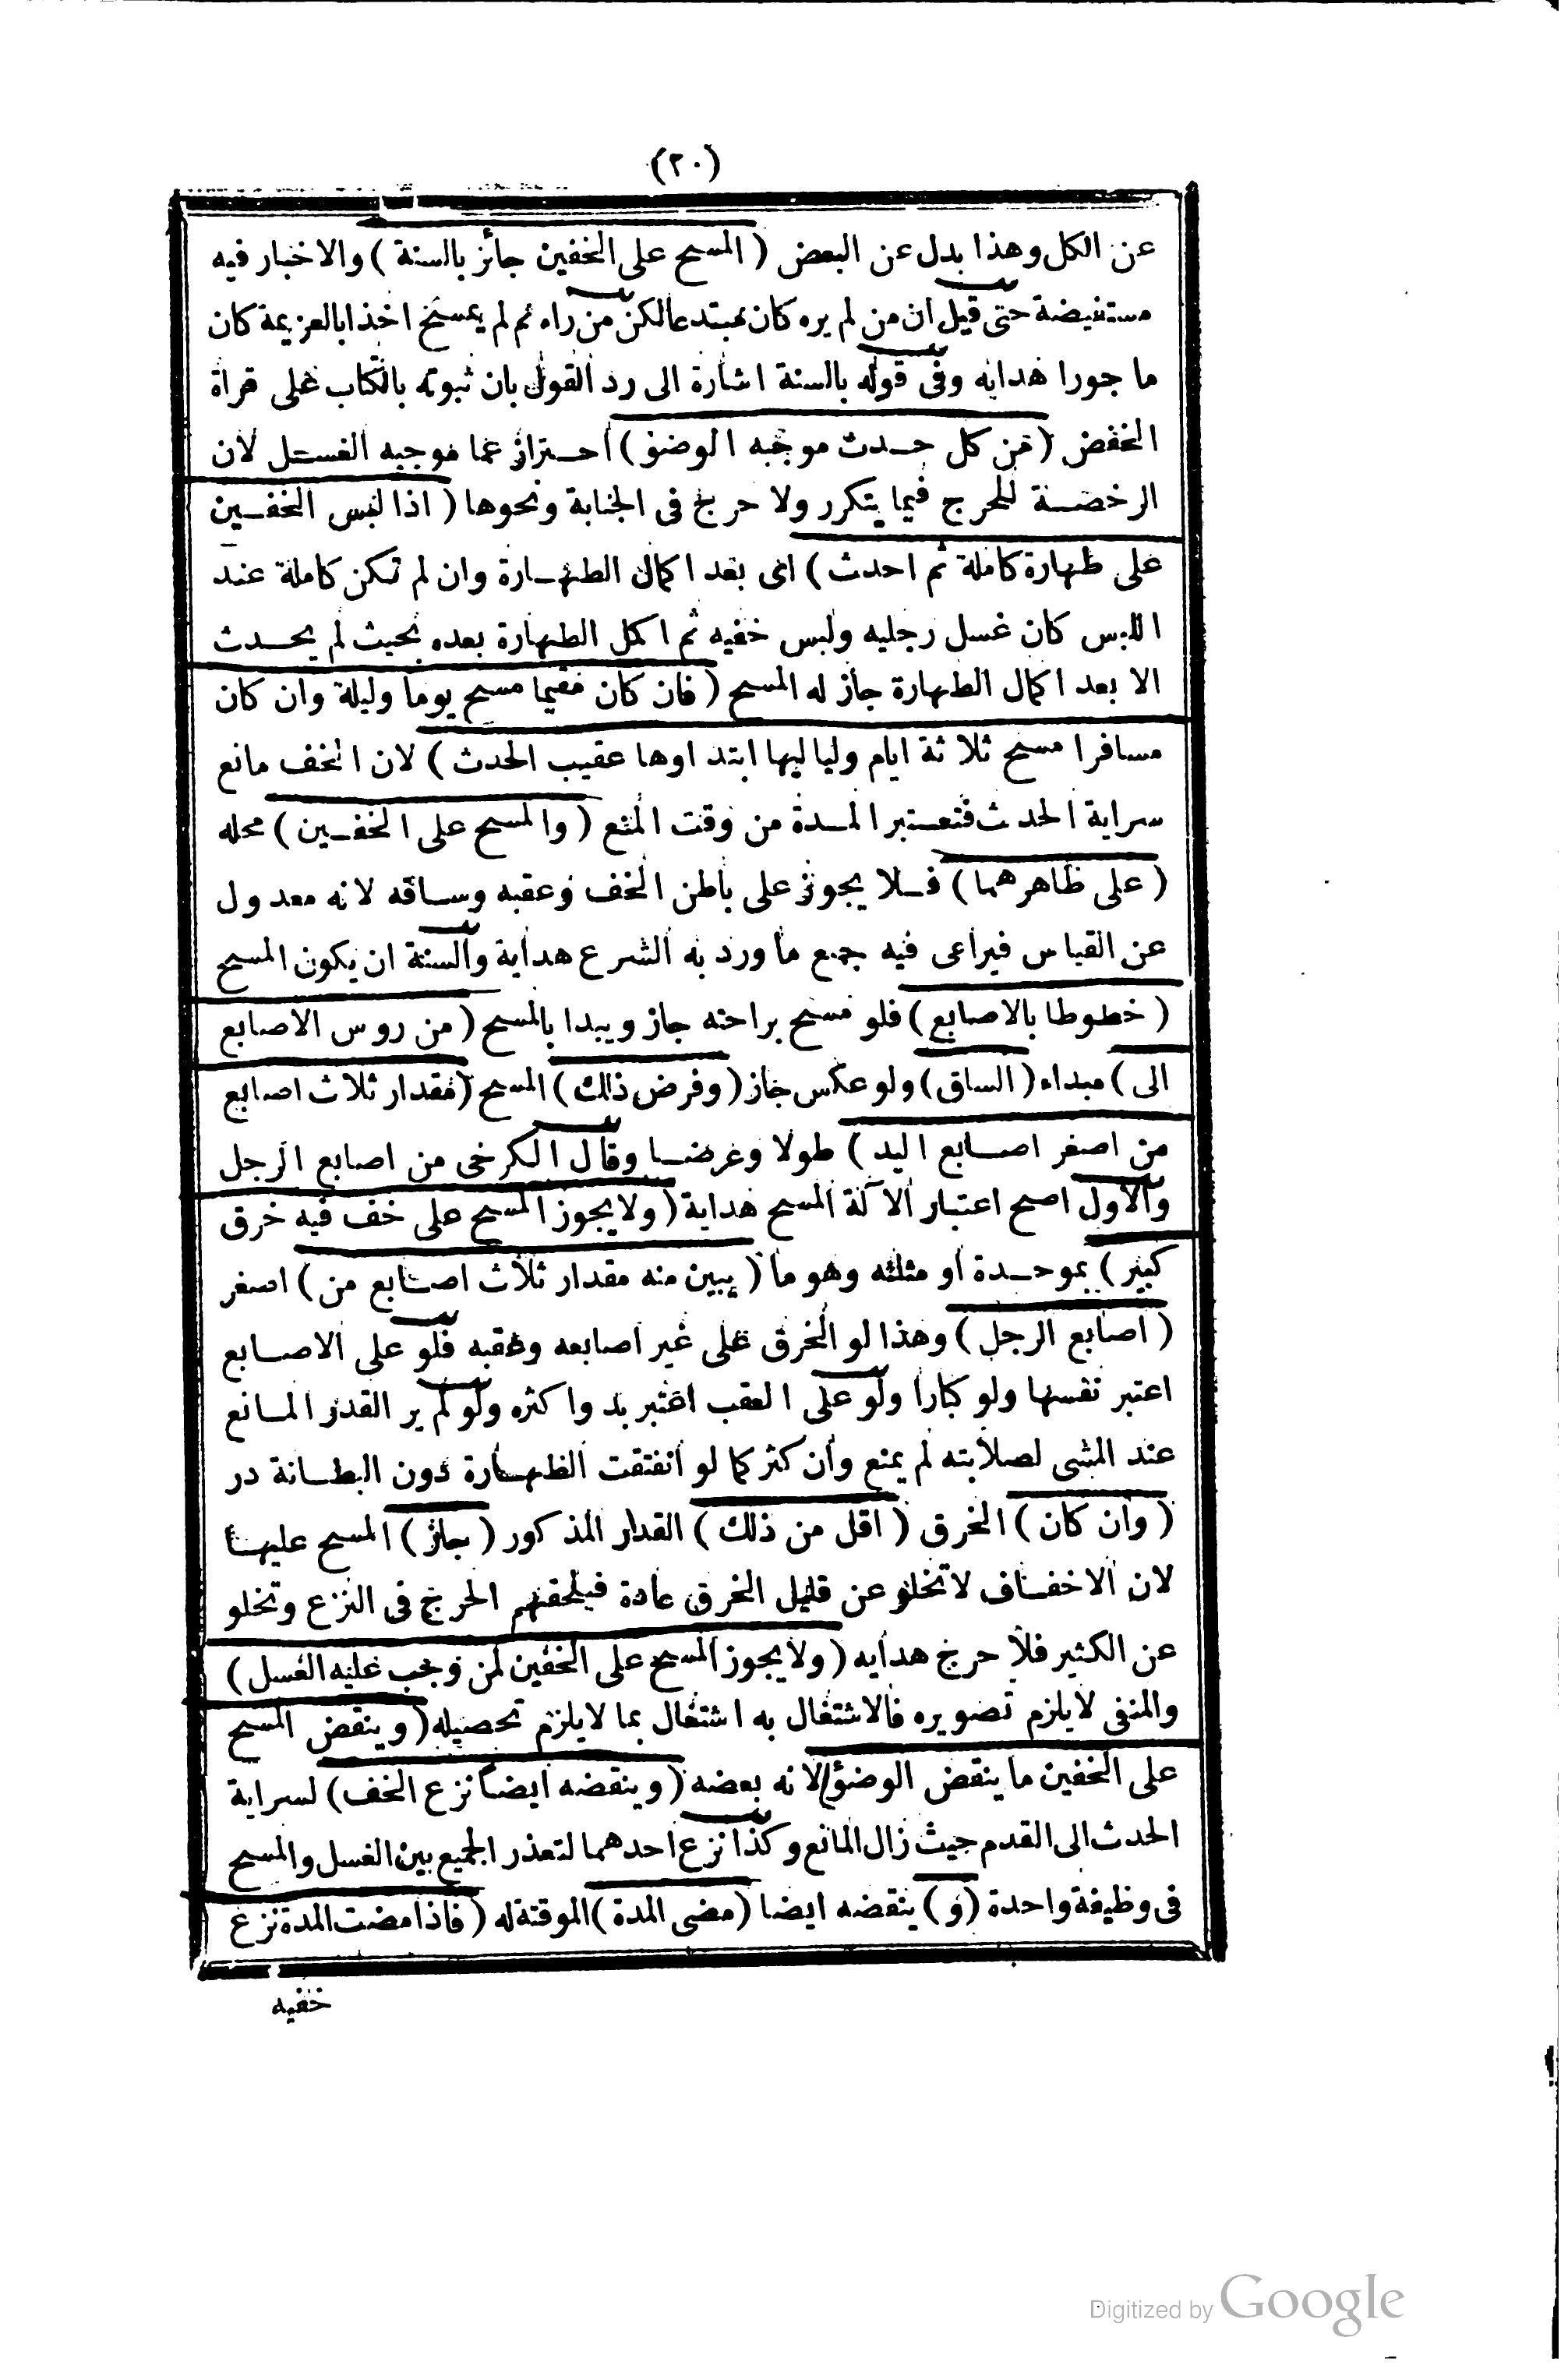 (٢٠)
عن الكل وهذا بدل عن البعض (المسح على الخفين جائز بالسنة) والاخبار فيه
مستفيضة حتى قيل ان من لم يره كان مبتدعا لكن من راه ثم لم يمسح اخذا بالعزيمة كان
ما جورا هدايه وفى قوله بالسنة اشارة الى رد القول بان ثبوته بالكتاب على قراة
الخفض (من كل حدث موجبه الوضؤ) احتراز عما موجبه الغسل لان
الرخصة للحرج فيما يتكرر ولا حرج فى الجنابة ونحوها (اذا لبس الخفين
على طهارة كاملة ثم احدث) اى بعد اكمال الطهارة وان لم تكن كاملة عند
اللبس كان غسل رجليه ولبس خفيه ثم اكمل الطهارة بعده بحيث لم يحدث
الا بعد اكمال الطهارة جاز له المسح (فان كان مقيما مسح يوما وليلة وان كان
مسافرا مسح ثلاثة ايام ولياليها ابتداوها عقيب الحدث) لان الخف مانع
سراية الحدث فتعتبر المدة من وقت المنع (والمسح على الخفين) محله
(على ظاهرهما) فلا يجوز على باطن الخف وعقبه وساقه لانه معدول
عن القياس فيراعى فيه جمع ما ورد به الشرع هداية والسنة ان يكون المسح
(خطوطا بالاصابع) فلو مسح براحته جاز ويبدا بالمسح (من روس الاصابع
الى) مبداء (الساق) ولو عكس جاز (وفرض ذلك) المسح (مقدار ثلاث اصابع
من اصغر اصابع اليد) طولا وعرضا وقال الكرخى من اصابع الرجل
والاول اصح اعتبار الآلة المسح هداية (ولا يجوز المسح على خف فيه خرق
كبير) بموحدة او مثلثه وهو ما (يبين منه مقدار ثلاث اصابع من) اصغر
(اصابع الرجل) وهذا لو الخرق على غير اصابعه وعقبه فلو على الاصابع
اعتبر نفسها ولو كبارا ولو على العقب اعتبر بدوا كثره ولو لم ير القدر المانع
عند المشى لصلابته لم يمنع وان كثر كما لو انفتقت الظهارة دون البطانة در
(وان كان) الخرق (اقل من ذلك) القدار المذكور (جائز) المسح عليها
لان الاخفاف لا تخلو عن قليل الخرق عادة فيلحقهم الحرج فى النزع وتخلو
عن الكثير فلا حرج هدايه (ولا يجوز المسح على الخفين لمن وجب عليه الغسل)
والمنفى لا يلزم تصويره فالاشتغال به اشتغال بما لا يلزم تحصيله (وينقض المسح
على الخفين ما ينقض الوضؤ) لانه بعضه (وينقضه ايضا نزع الخف) لسراية
الحدث الى القدم حيث زال المانع وكذا نزع احدهما لتعذر الجميع بين الغسل والمسح
فى وظيفة واحدة (و) ينقضه ايضا (مضى المدة) الموقتة له (فاذا مضت المدة نزع
خفيه
Digitized by Google